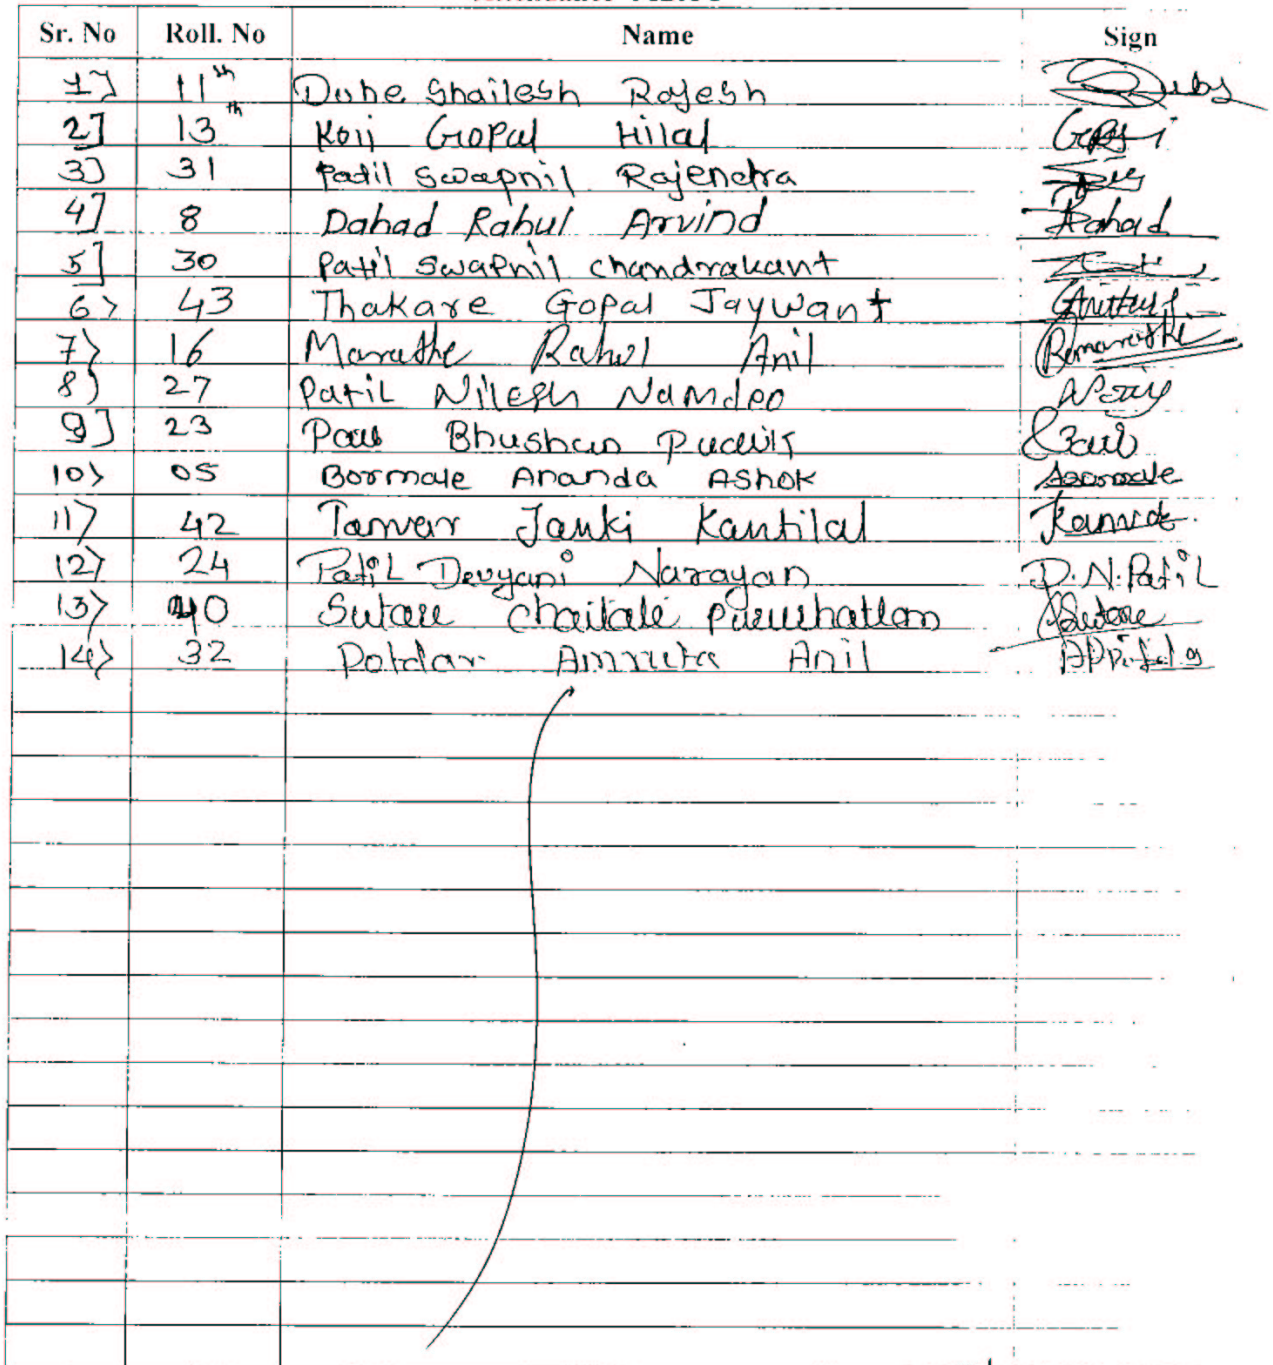 Sr. No Roll. No Name Sign
1] 11th Dube Shailesh Rajesh
2] 13th Koli Gopal Hilal
3] 31 Patil Swapnil Rajendra
4] 8 Dahad Rahul Arvind Dahad
5] 30 Patil Swapnil chandrakant
6> 43 Thakare Gopal Jaywant
7> 16 Marathe Rahul Anil Rmarathe
8) 27 Patil Nilesh Namdeo
9] 23 Bhushan
10> 05 Bormale Ananda Ashok
11> 42 Tanvar Janki Kantilal
12> 24 Patil Devyani Narayan D.N.Patil
13> 40 Sutare chaitali purushattam Sutare
14> 32 Potdar Amruta Anil